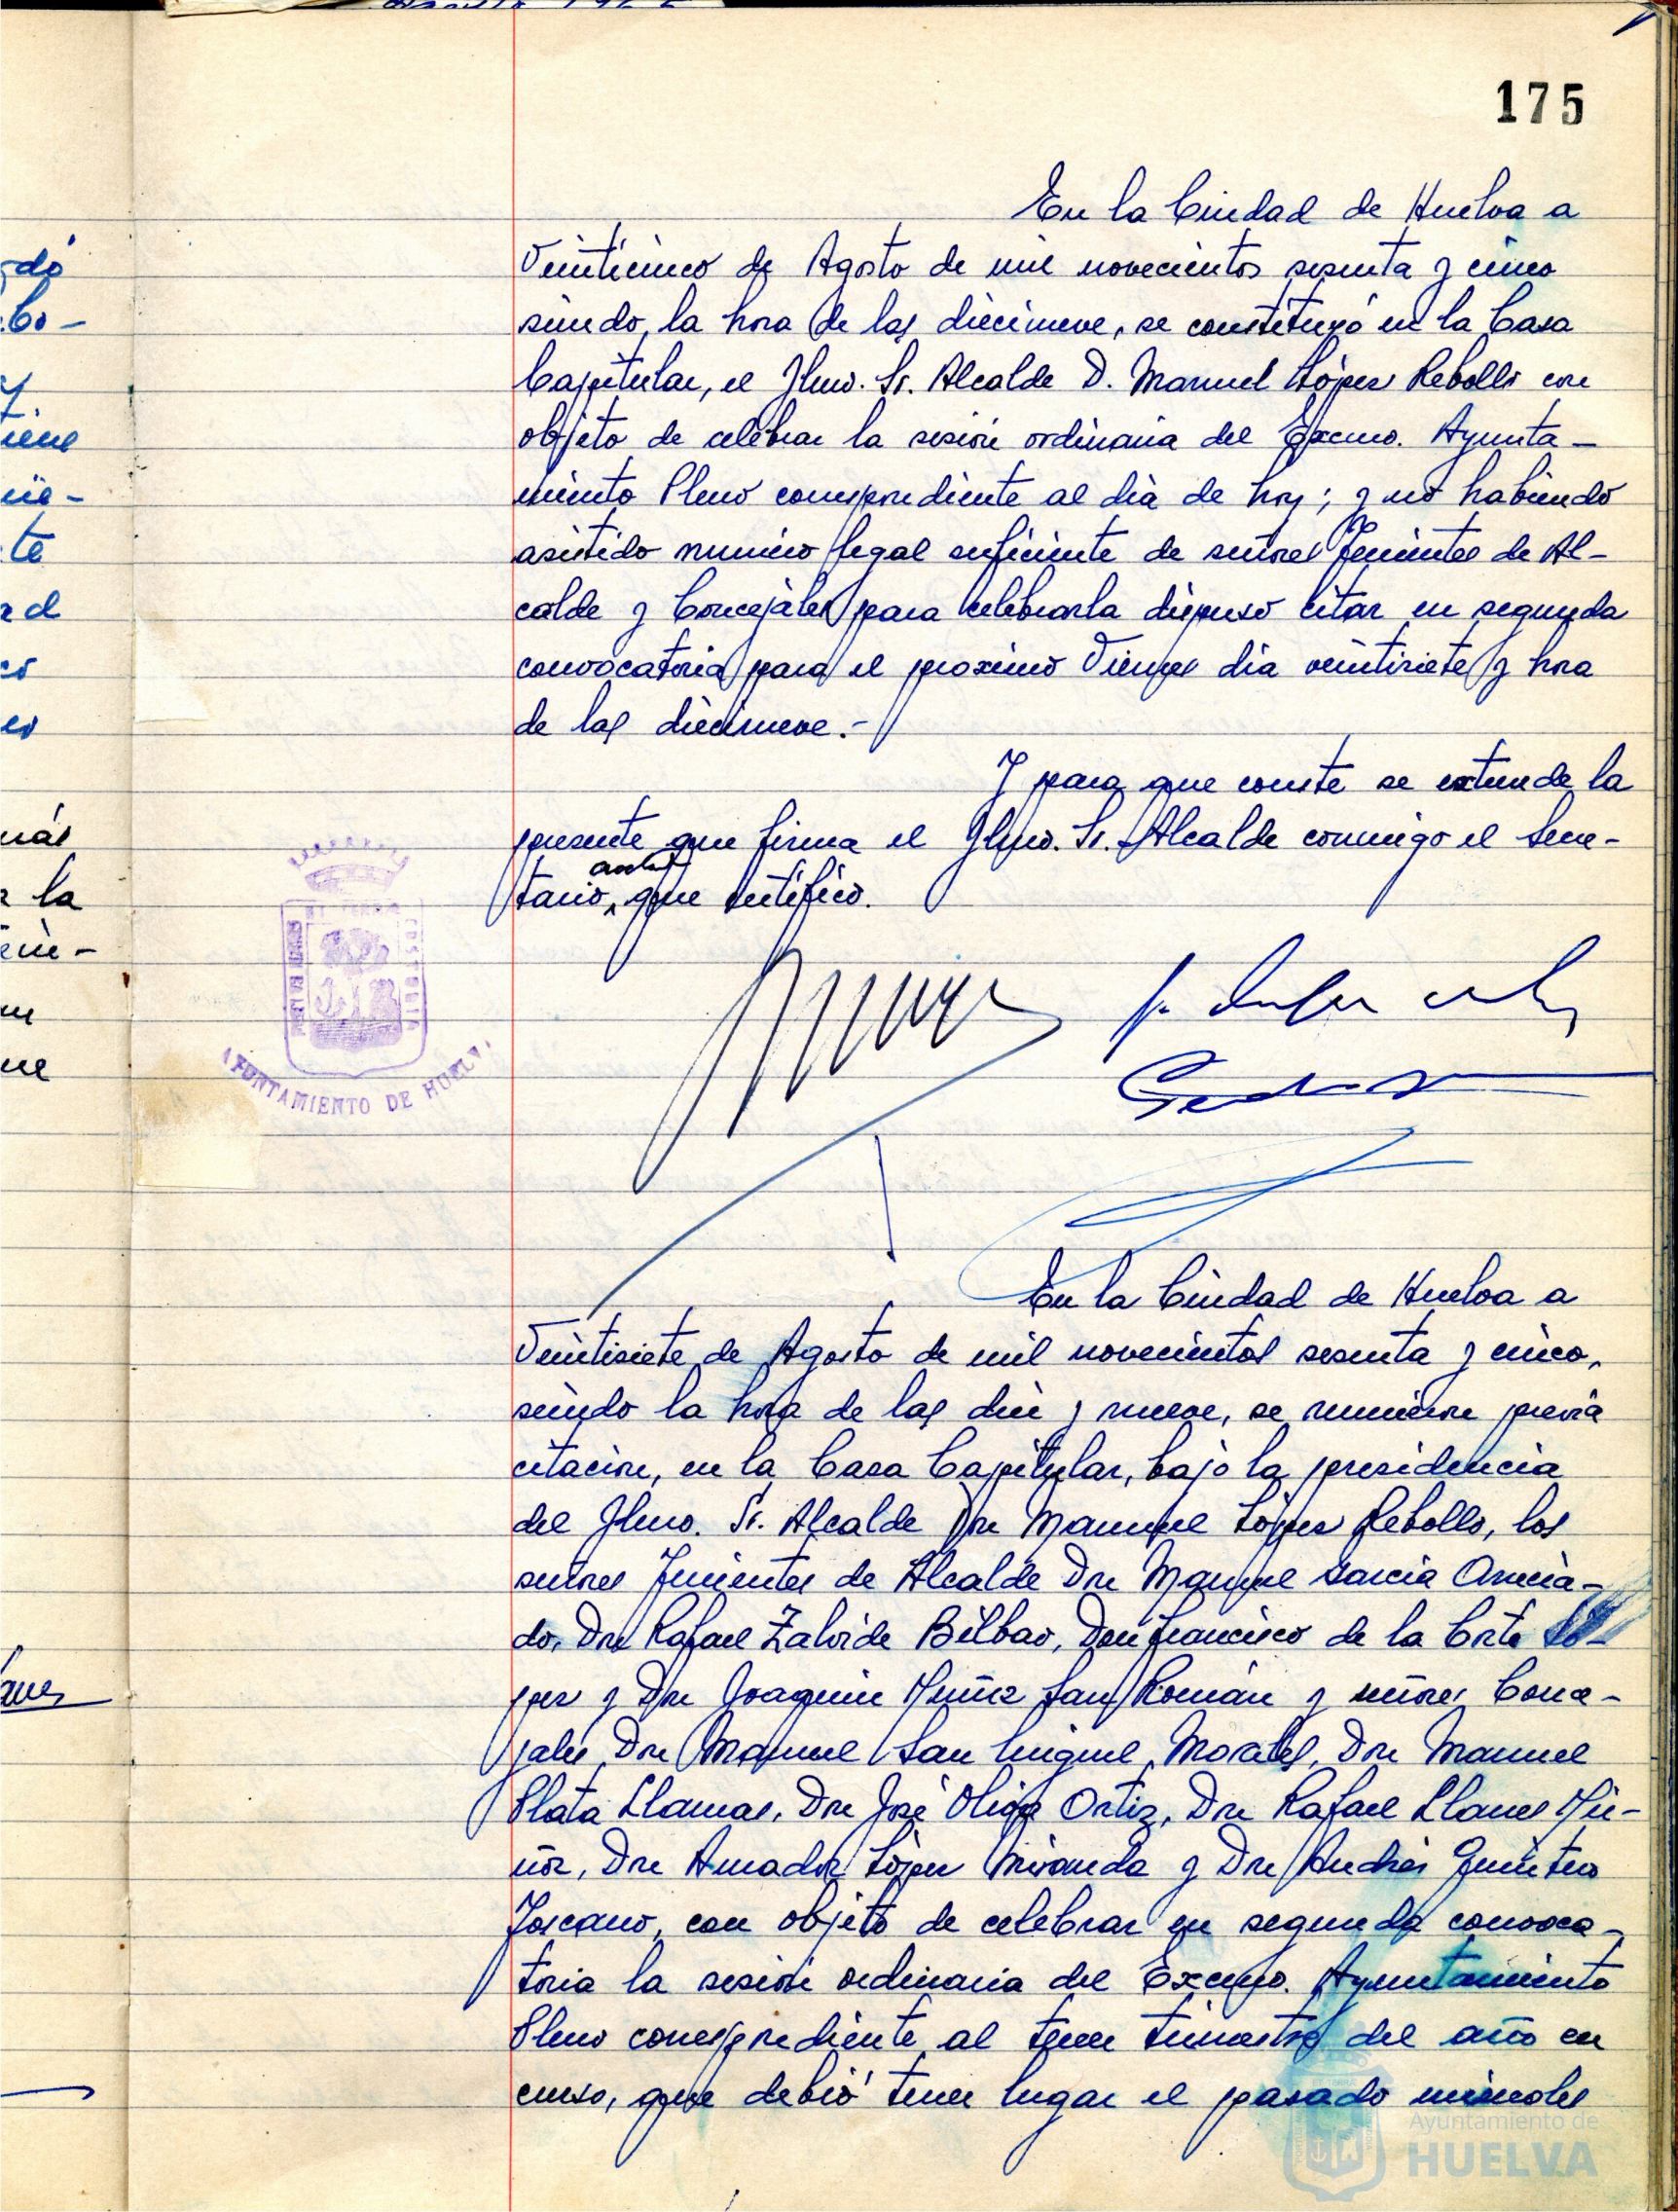 175
En la Ciudad de Huelva a
Veinticinco de Agosto de mil novecientos sesenta y cinco
siendo la hora de las diecinueve, se constituyó en la Casa
Capitular, el Ilmo. Sr. Alcalde D. Manuel López Rebollo con
objeto de celebrar la sesión ordinaria del Excmo. Ayunta-
miento Pleno correspondiente al día de hoy; y no habiendo
asistido número legal suficiente de señores Tenientes de Al-
calde y Concejales para celebrarla dispuso citar en segunda
convocatoria para el proximo Viernes dia veintisiete y hora
de las diecinueve.-
Y para que conste se extiende la
presente que firma el Ilmo. Sr. Alcalde conmigo el Secre-
tario, que certifico.
AYUNTAMIENTO DE HUELVA
En la Ciudad de Huelva a
Veintisiete de Agosto de mil novecientos sesenta y cinco,
siendo la hora de las diez y nueve, se reunieron previa
citación, en la Casa Capitular, bajo la presidencia
del Ilmo. Sr. Alcalde Don Manuel López Rebollo, los
señores Tenientes de Alcalde Don Manuel García
do, Don Rafael Zalvide Bilbao, Don Francisco de la Corte Ló-
pez y Don Joaquin Muñiz San Román y señores Conce-
jales Don Manuel San Miguel Morales, Don Manuel
Plata Llamas, Don José Oliva Ortiz, Don Rafael Llanes Mu-
ñoz, Don Amador López Miranda y Don Andrés Quintero
Toscano, con objeto de celebrar en segunda convoca-
toria la sesión ordinaria del Excmo. Ayuntamiento
Pleno correspondiente al tercer trimestre del año en
curso, que debió tener lugar el pasado miércoles
Ayuntamiento de
HUELVA